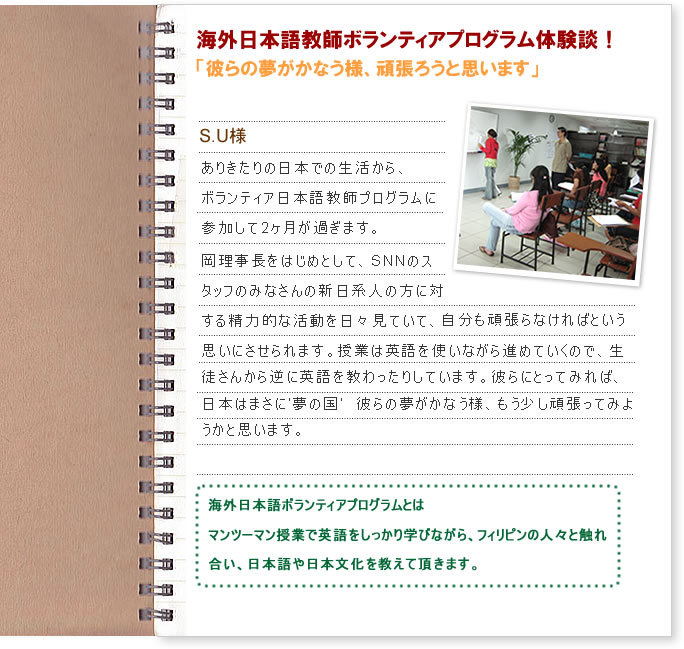 海外日本語教師ボランティアプログラム体験談！
「彼らの夢がかなう様、頑張ろうと思います」
S.U様
ありきたりの日本での生活から、
ボランティア日本語教師プログラムに
参加して2ヶ月が過ぎます。
岡理事長をはじめとして、SNNのス
タッフのみなさんの新日系人の方に対
する精力的な活動を日々見ていて、自分も頑張らなければという
思いにさせられます。授業は英語を使いながら進めていくので、生
徒さんから逆に英語を教わったりしています。彼らにとってみれば、
日本はまさに'夢の国'　彼らの夢がかなう様、もう少し頑張ってみよ
うかと思います。
海外日本語ボランティアプログラムとは
マンツーマン授業で英語をしっかり学びながら、フィリピンの人々と触れ
合い、日本語や日本文化を教えて頂きます。